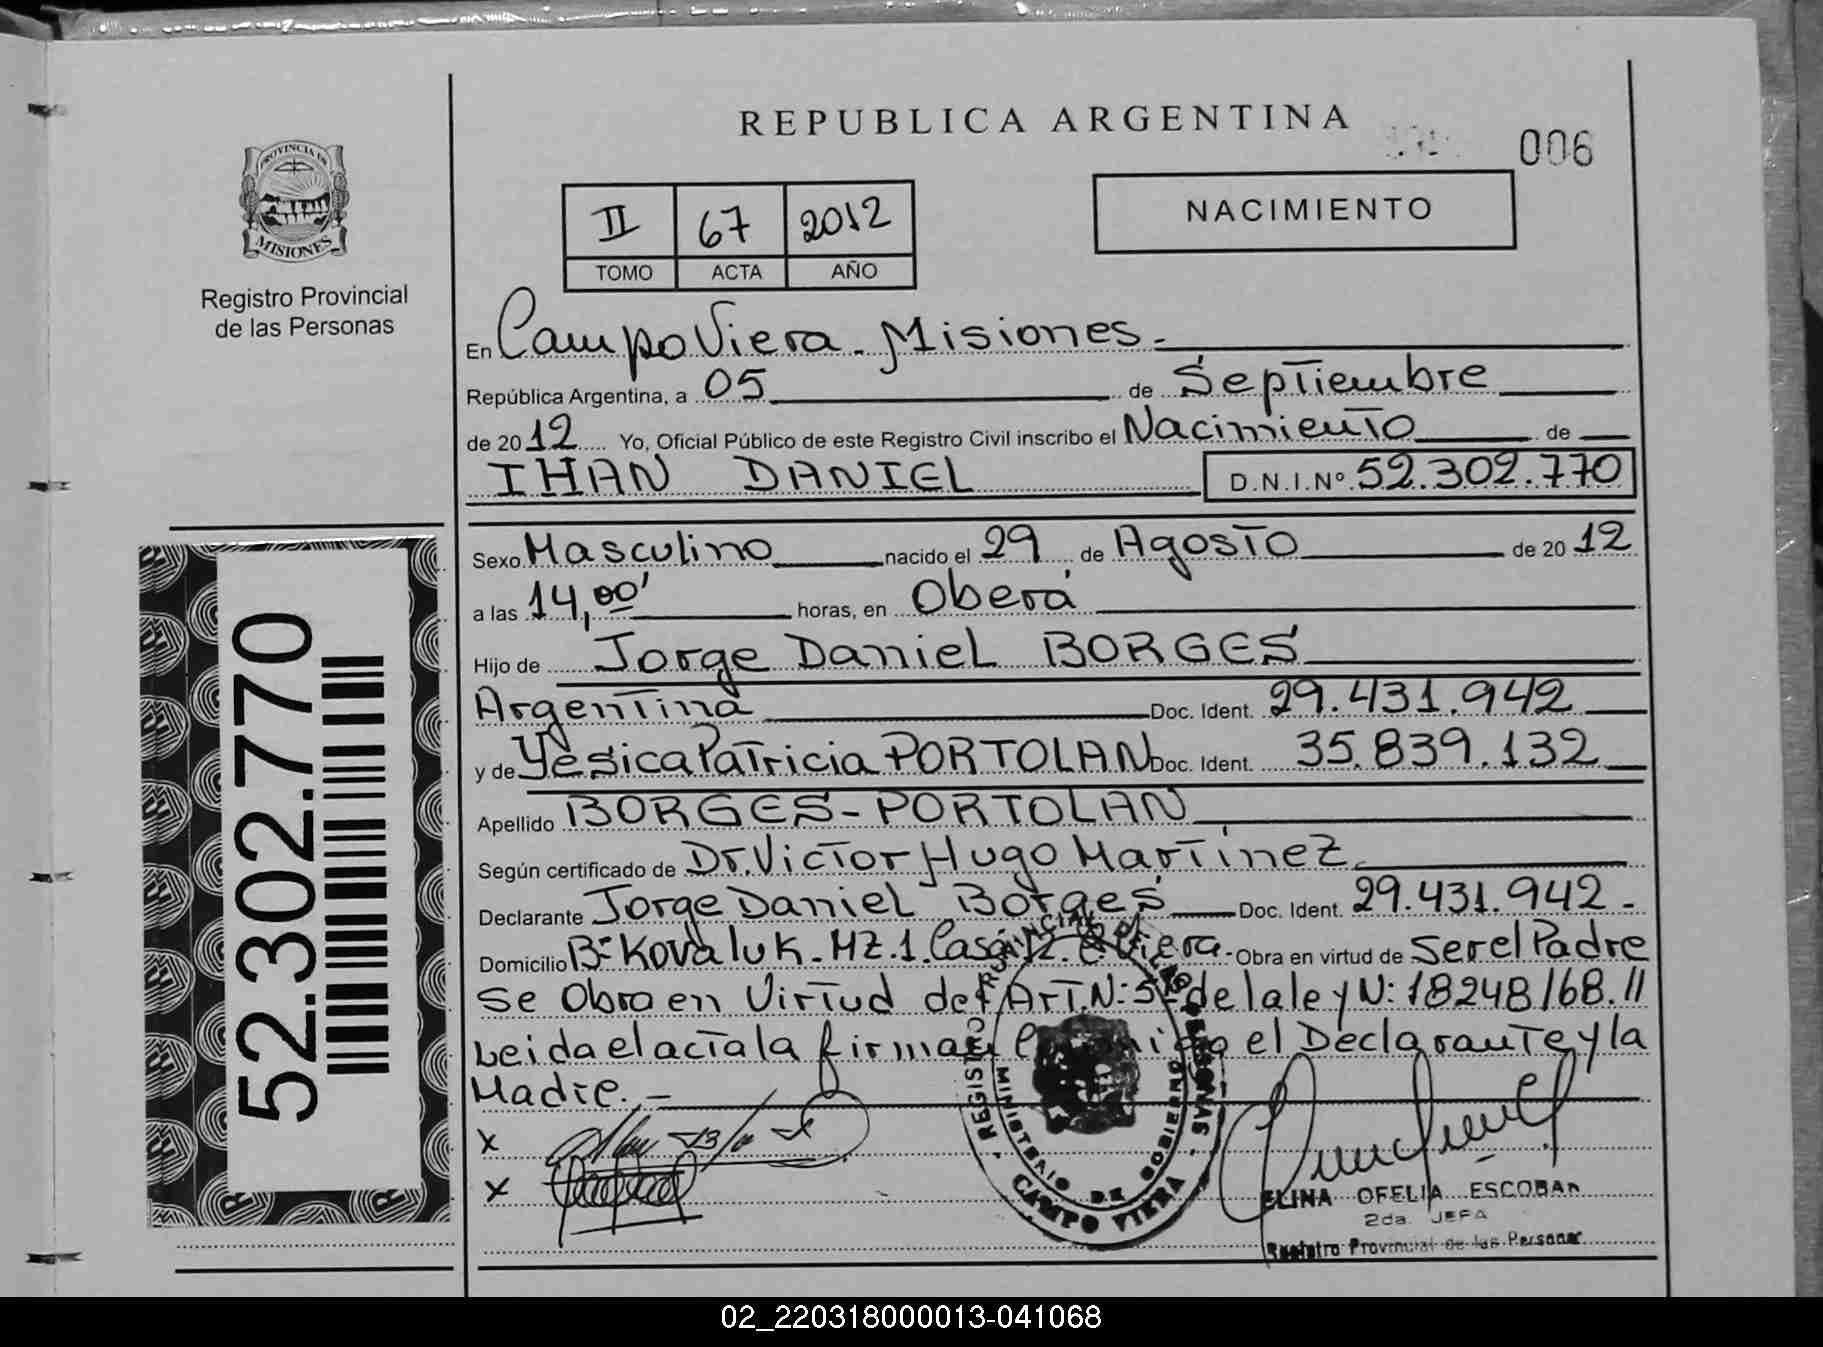 REPUBLICA ARGENTINA
006
PROVINCIA DE
MISIONES
Registro Provincial
de las Personas
II 67 2012
TOMO ACTA AÑO
NACIMIENTO
En Campo Viera - Misiones.-
República Argentina, a 05 de Septiembre
de 2012 Yo, Oficial Público de este Registro Civil inscribo el Nacimiento de
IHAN DANIEL D.N.I.Nº 52.302.770
Sexo Masculino nacido el 29 de Agosto de 2012
a las 14,00' horas, en Oberá
Hijo de Jorge Daniel BORGES
Argentina Doc. Ident. 29.431.942
y de Yesica Patricia PORTOLAN Doc. Ident. 35.839.132
Apellido BORGES-PORTOLAN
Según certificado de Dr. Victor Hugo Martinez
Declarante Jorge Daniel Borges Doc. Ident. 29.431.942.-
Domicilio Bº Kovaluk. MZ.1. Casa Viera.- Obra en virtud de Ser el Padre
Se Obra en Virtud del Art.N: 5 de la ley N: 18248/68.//
Leida el acta la firman el Declarante y la
Madre.-
x
x
52.302.770
REGISTRO PROVINCIAL DE LAS PERSONAS
MINISTERIO DE GOBIERNO
CAMPO VIERA
ELINA OFELIA ESCOBAR
2da. JEFA
Registro Provincial de las Personas
02_220318000013-041068